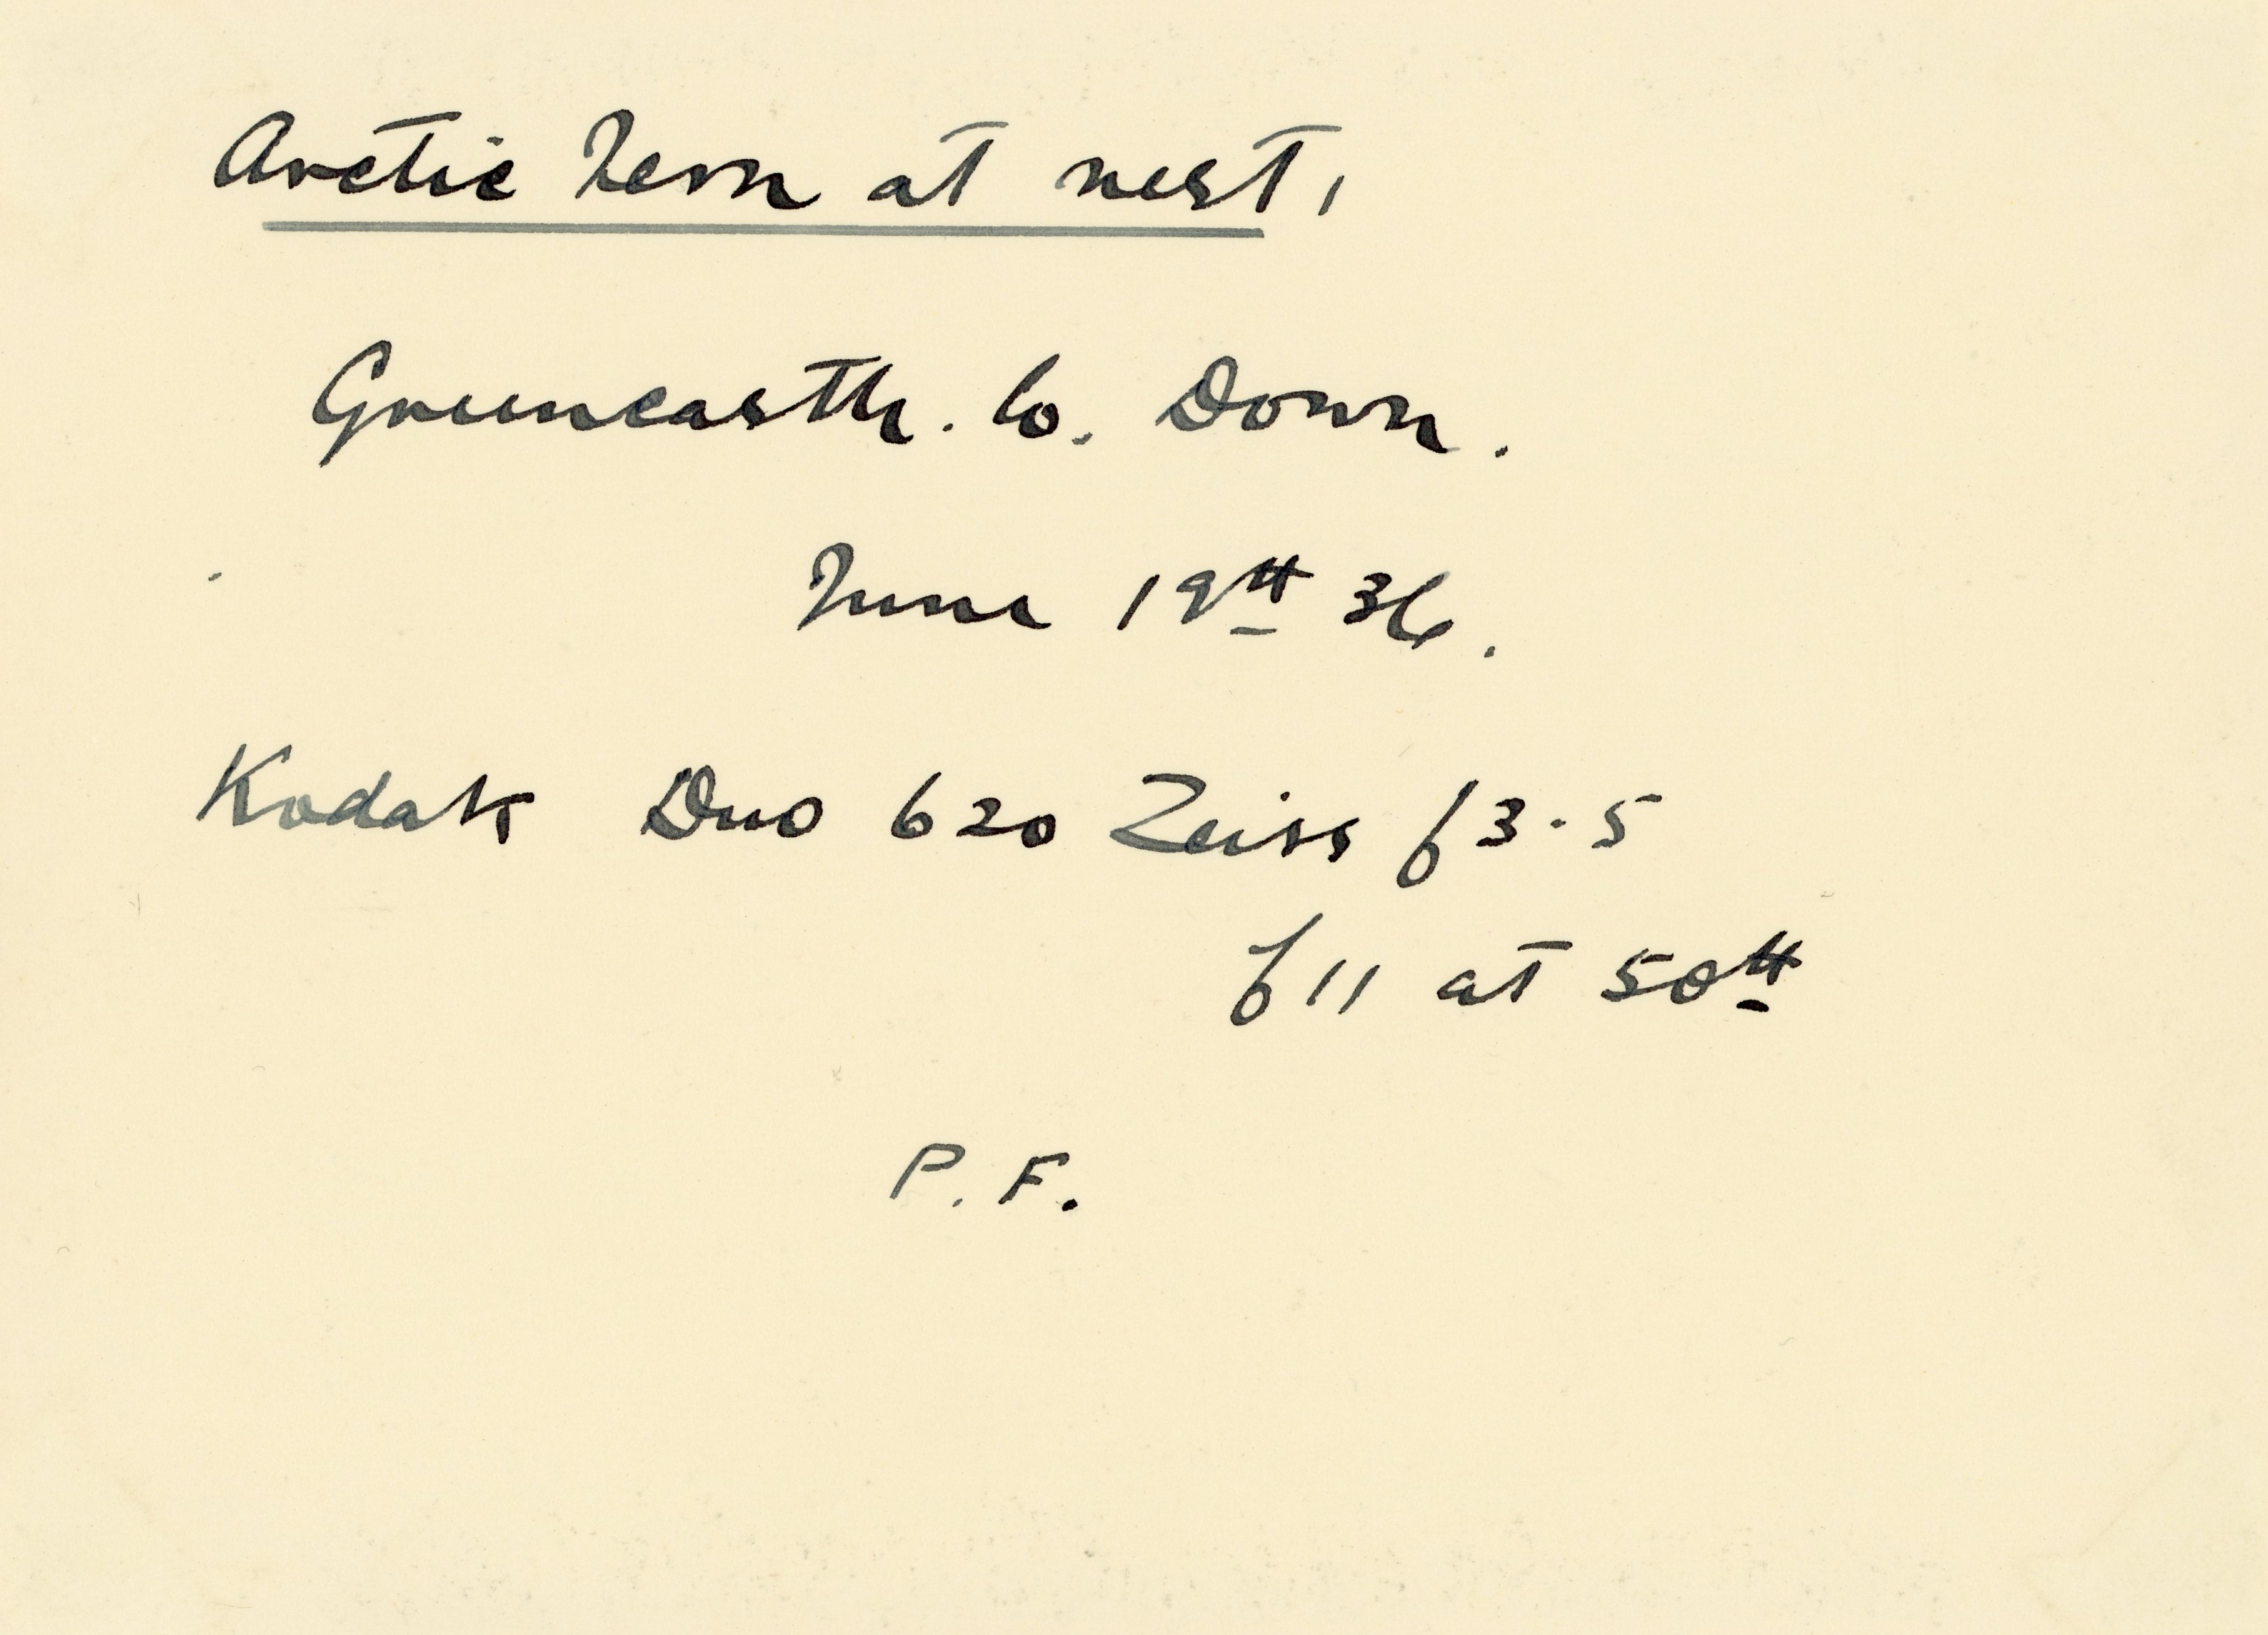 Arctic Tern at nest,
Greencastle. Co. Down.
June 19th 36.
Kodak Duo 620 Zeiss f3.5
f11 at 50th
P. F.